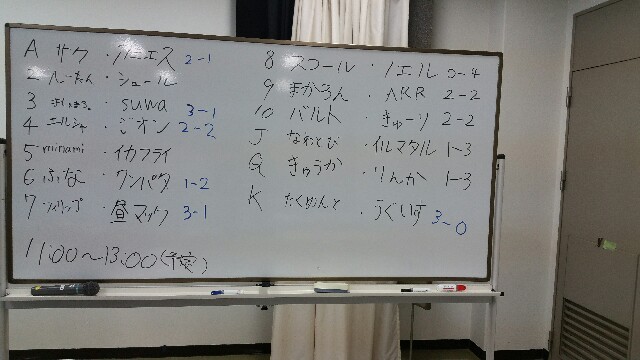 A サク・アニエス 2-1
2 ・シュール
3 ・suwa 3-1
4 ・ジオン 2-2
5 minami・イカフライ
6 ふな・ワンパタ 1-2
7 ・昼マック 3-1
11:00～13:00(予定)
8 スコール・ノエル 0-4
9 まかろん・AKR 2-2
10 バルト・きゅーり 2-2
J なわとび・イルマタル 1-3
Q きゅうか・りんか 1-3
K たくあんと・うぐいす 3-0